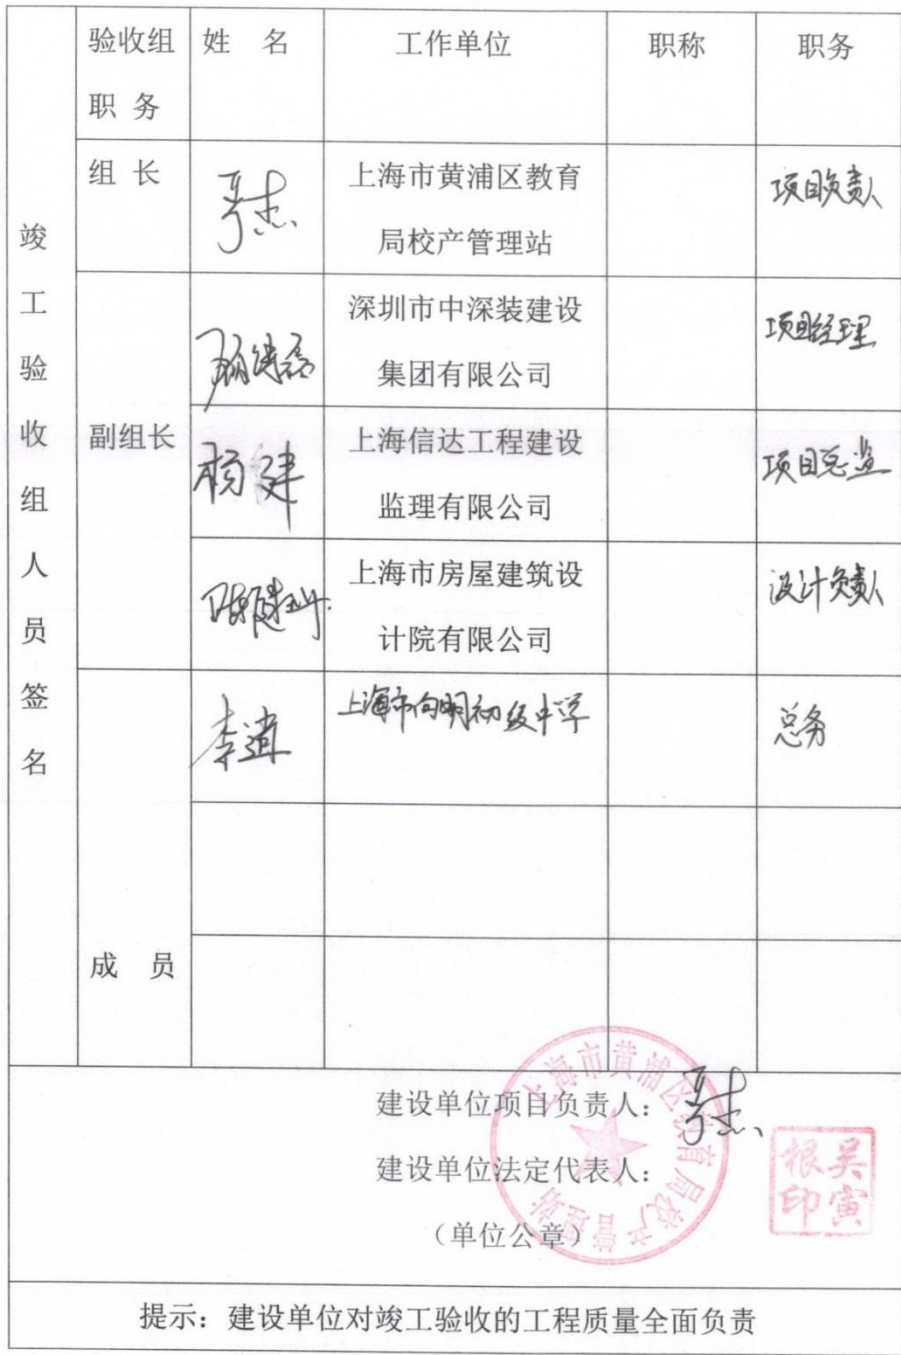 竣工验收组人员签名
验收组
职 务
姓 名
工作单位
职称
职务
组 长
上海市黄浦区教育
局校产管理站
项目负责人
副组长
深圳市中深装建设
集团有限公司
项目经理
杨建
上海信达工程建设
监理有限公司
项目总监
上海市房屋建筑设
计院有限公司
设计负责人
成 员
李
上海市向明初级中学
总务
建设单位项目负责人：
建设单位法定代表人：
（单位公章）
上海市黄浦区教育局校产管理站
吴寅根印
提示：建设单位对竣工验收的工程质量全面负责